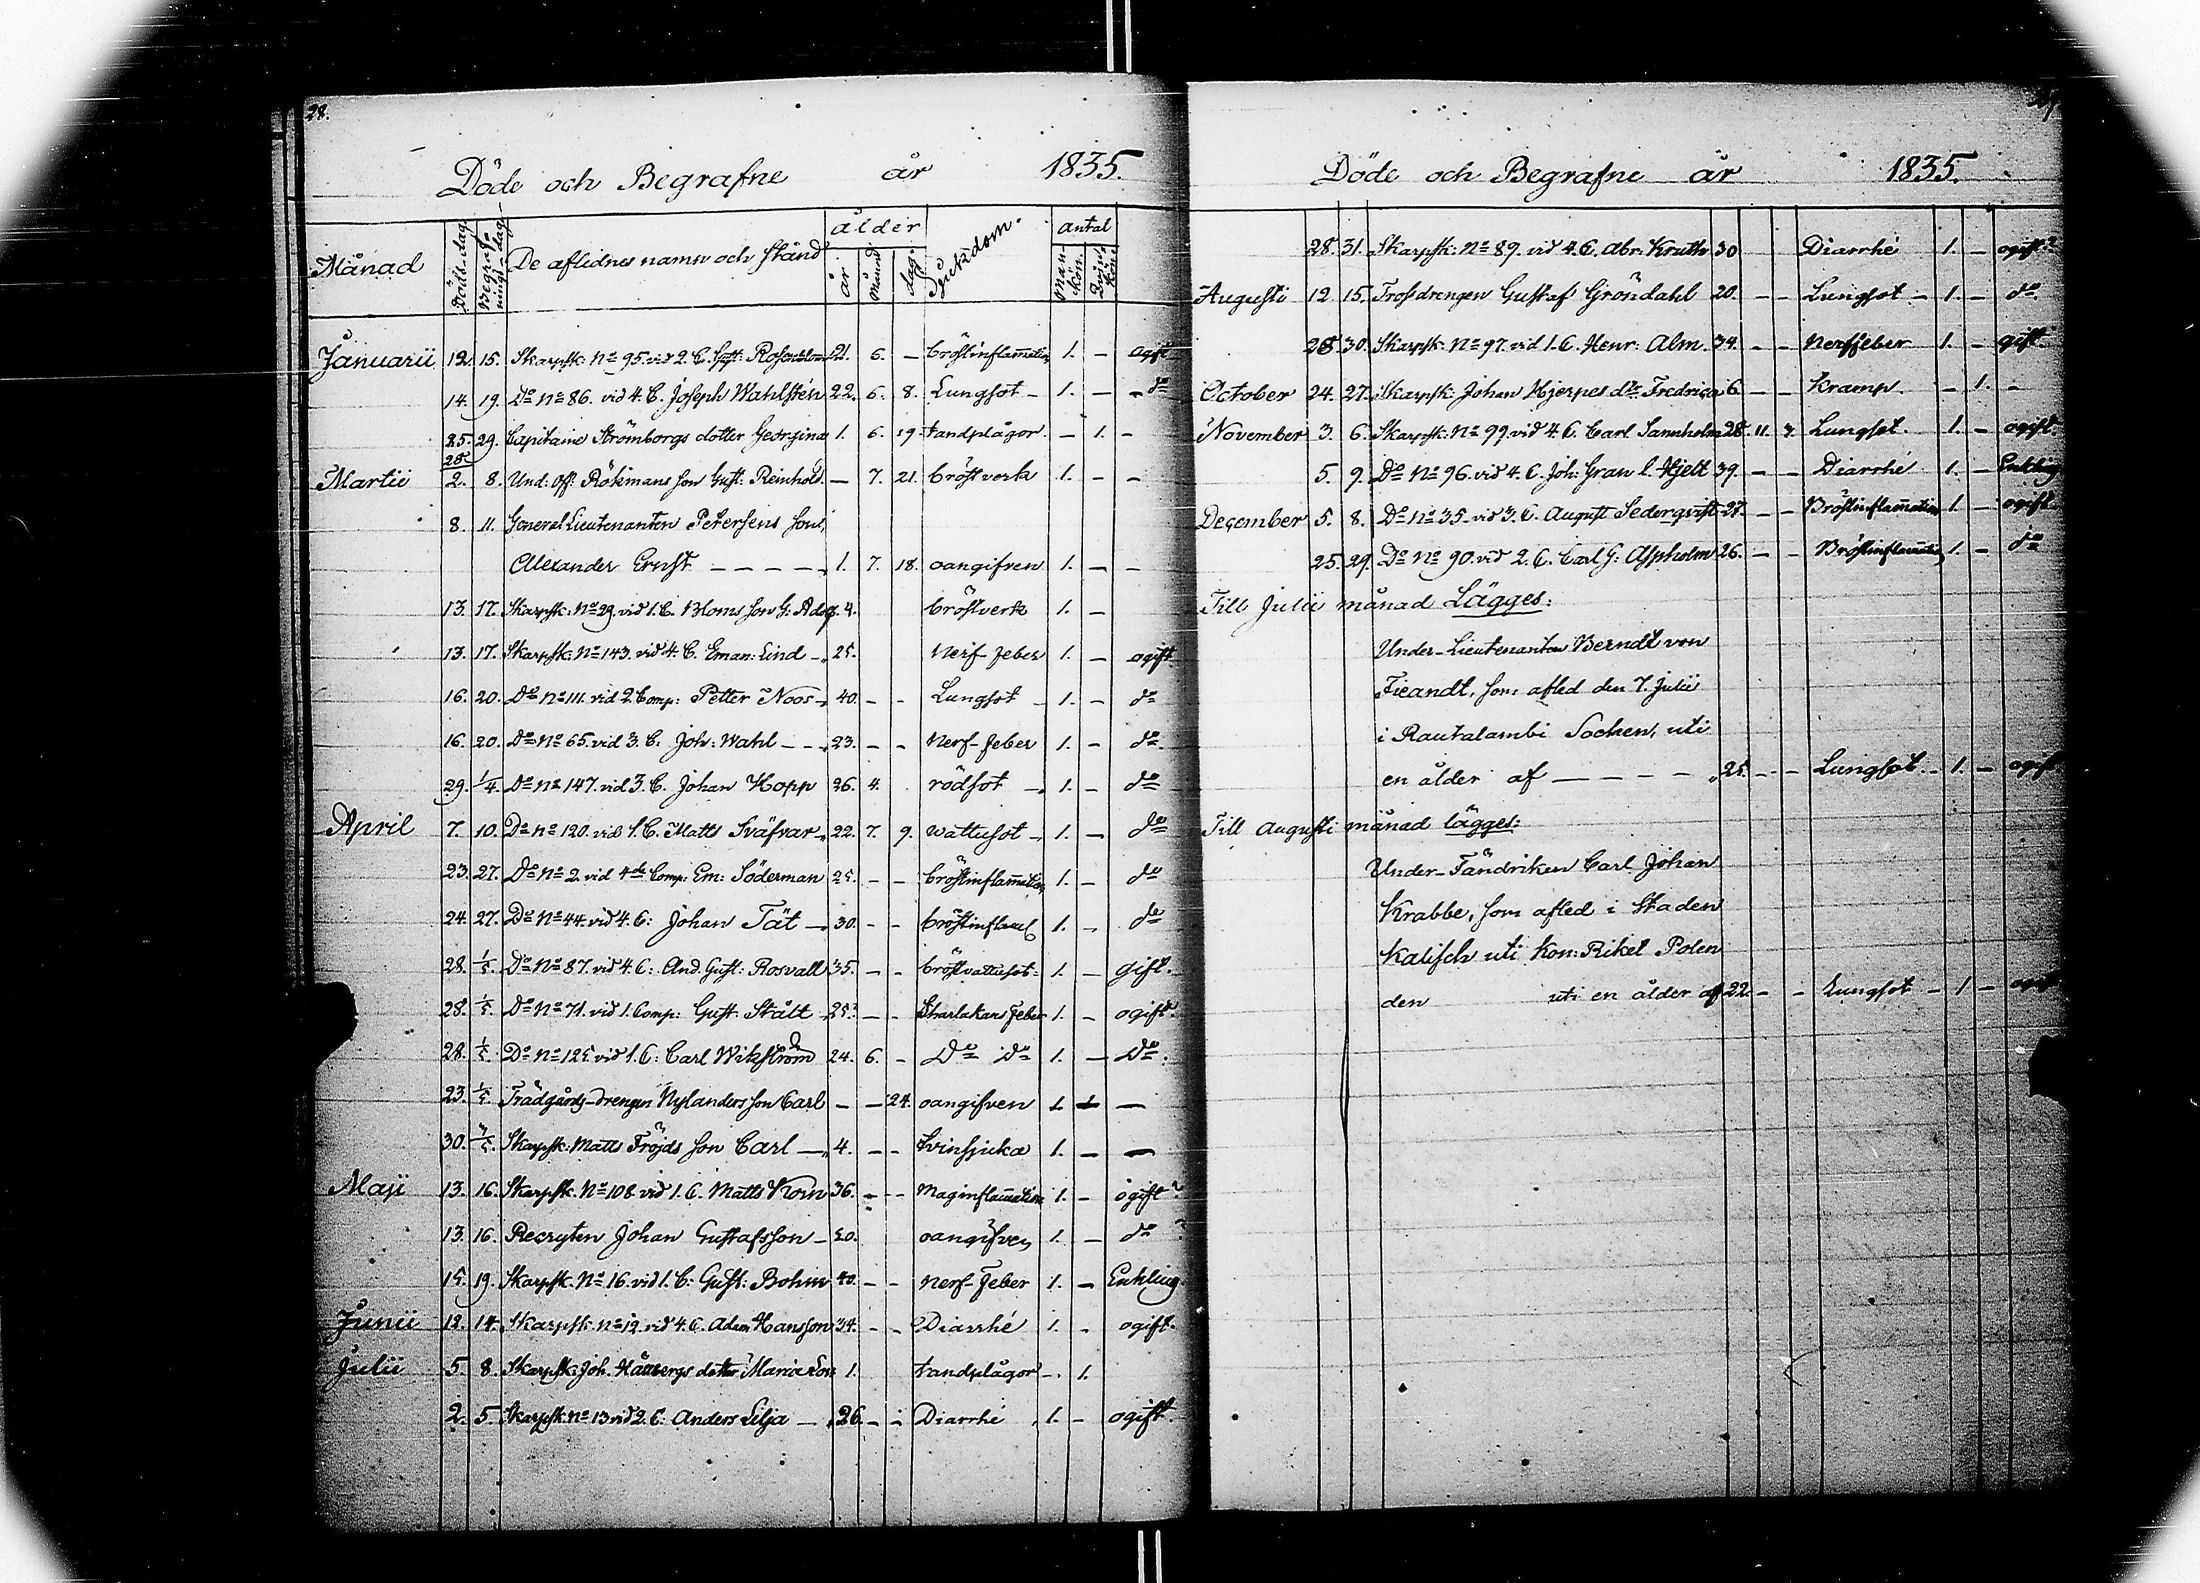 28.
Döde och Begrafne år 1835.
Månad Död-dag Begrafnings-dag De aflidnes namn och stånd ålder år månad dag Sjukdom antal Mankön. Qvinkön.
Januarii 12. 15. Skarpsk: No 95. vid 2. C. 21. 6. — bröstinflam̄ation 1. — ogift
14. 19. Do No 86. vid 4. C. Joseph Wahlstén 22. 6. 8. Lungsot — 1. — — do
25. 29. Capitaine Strömborgs dotter Georgina 1. 6. 19. tandplågor. — 1. —
28
Martii 2. 8. Und: Off: Rökmans son Gust: Reinhold. — 7. 21. bröstverk 1. — —
8. 11. General Lieutenanten Petersens son,
Alexander Ernst — — — — 1. 7. 18. oangifven 1. — —
13. 17. Skarpsk: No 29. vid 1. C. Bloms son G: Adog. 4. bröstverk 1. —
13. 17. Skarpsk: No 143. vid 4. C. Eman: Lind — 25. Nerf-feber 1. — ogift
16. 20. Do No 111. vid 2. Comp: Petter Noos — 40. — — Lungsot — 1. — do
16. 20. Do No 65. vid 3. C. Joh: Wahl — — 23. — — Nerf-feber 1. — do.
29. 1/4. Do No 147. vid 3. C. Johan Hopp 26. 4. rödsot — 1. — do
April 7. 10. Do No 120. vid 1. C. Matts Sväfvar — 22. 7. 9. wattusot — 1. — do
23. 27. Do No 2. vid 4de Comp: Em: Söderman 25. — — bröstinflam̄ation 1. — do
24. 27. Do No 44. vid 4. C: Johan Tät — 30. — — bröstinflam̄ 1. — do
28. 1/5. Do No 87. vid 4. C: And. Gust: Rosvall 35. — — bröstvattusot. 1. — gift.
28. 1/5. Do No 71. vid 1. Comp: Gust. Stält 25. — — Skarlakans feber 1. — ogift
28. 1/5. Do No 125. vid 1. C: Carl Wikström 24. 6. — Do Do 1. — Do.
23. 1/5. Trädgårds-drengen Nylanders son Carl — — 24. oangifven 1. 1. —
30. 3/5. Skarpsk. Matts Fröjds son Carl — 4. — — tvinsjuka 1. — —
Maji 13. 16. Skarpsk. No 108. vid 1. C. Matts Korn 36. — — Maginflam̄ation 1. — ogift?
13. 16. Recryten Johan Gustafsson — 20. oangifven 1. — do ?
15. 19. Skarpsk. No 16. vid 1. C: Gust: Bohm 40. — — Nerf-Feber 1. — Enkling.
Junii 12. 14. Skarpsk. No 12. vid 4. C. Adam Hansson 34. — — Diarrhé 1. — ogift.
Julii 5. 8. Skarpsk. Joh. dotter Maria 1. tandplågor —. 1.
2. 5. Skarpsk. No 13 vid 2. C: Anders Lilja — 26. — — Diarrhé 1. — ogift.
Döde och Begrafne år 1835.
28. 31. Skarpsk: No 89. vid 4. C. Abr. Kruth 30 Diarrhé 1. — ogift?
Augusti 12 15. Trossdrengen Gustaf Gröndahl 20. — — Lungsot — 1. — do.
28. 30. Skarpsk: No 97. vid 1. C. Henr: Alm. 34. — — Nerffeber 1. — gift
October 24. 27. Skarpsk: Johan Hjerpes dtr Fredrica 6. — — Kramp. — 1. —
November 3. 6. Skarpsk: No 99. vid 4. C. Carl Sannholm 28. 11. 7. Lungsot. 1. — ogift.
5. 9. Do No 96. vid 4. C. Joh: Gran l. Hjelt 39. — — Diarrhé 1. — Enkling
December 5. 8. Do No 35. vid 3. C. August Sederqvist 27. — — Bröstinflam̄ation 1. — ogift.
25. 29. Do No 90. vid 2. C. Carl G: Aspholm 26. — — Bröstinflam̄ation 1. — do
Till Julii månad Lägges:
Under-Lieutenanten Berndt von
Fieandt, som afled den 7. Julii
i Rautalambi Socken, uti
en ålder af — — — — 25. — — Lungsot. — 1. — ogift
Till Augusti månad lägges:
Under-Fändriken Carl Johan
Krabbe, som afled i Staden
Kalisch uti Kon: Riket Polen
den uti en ålder af 22 — — Lungsot — 1 — ogift